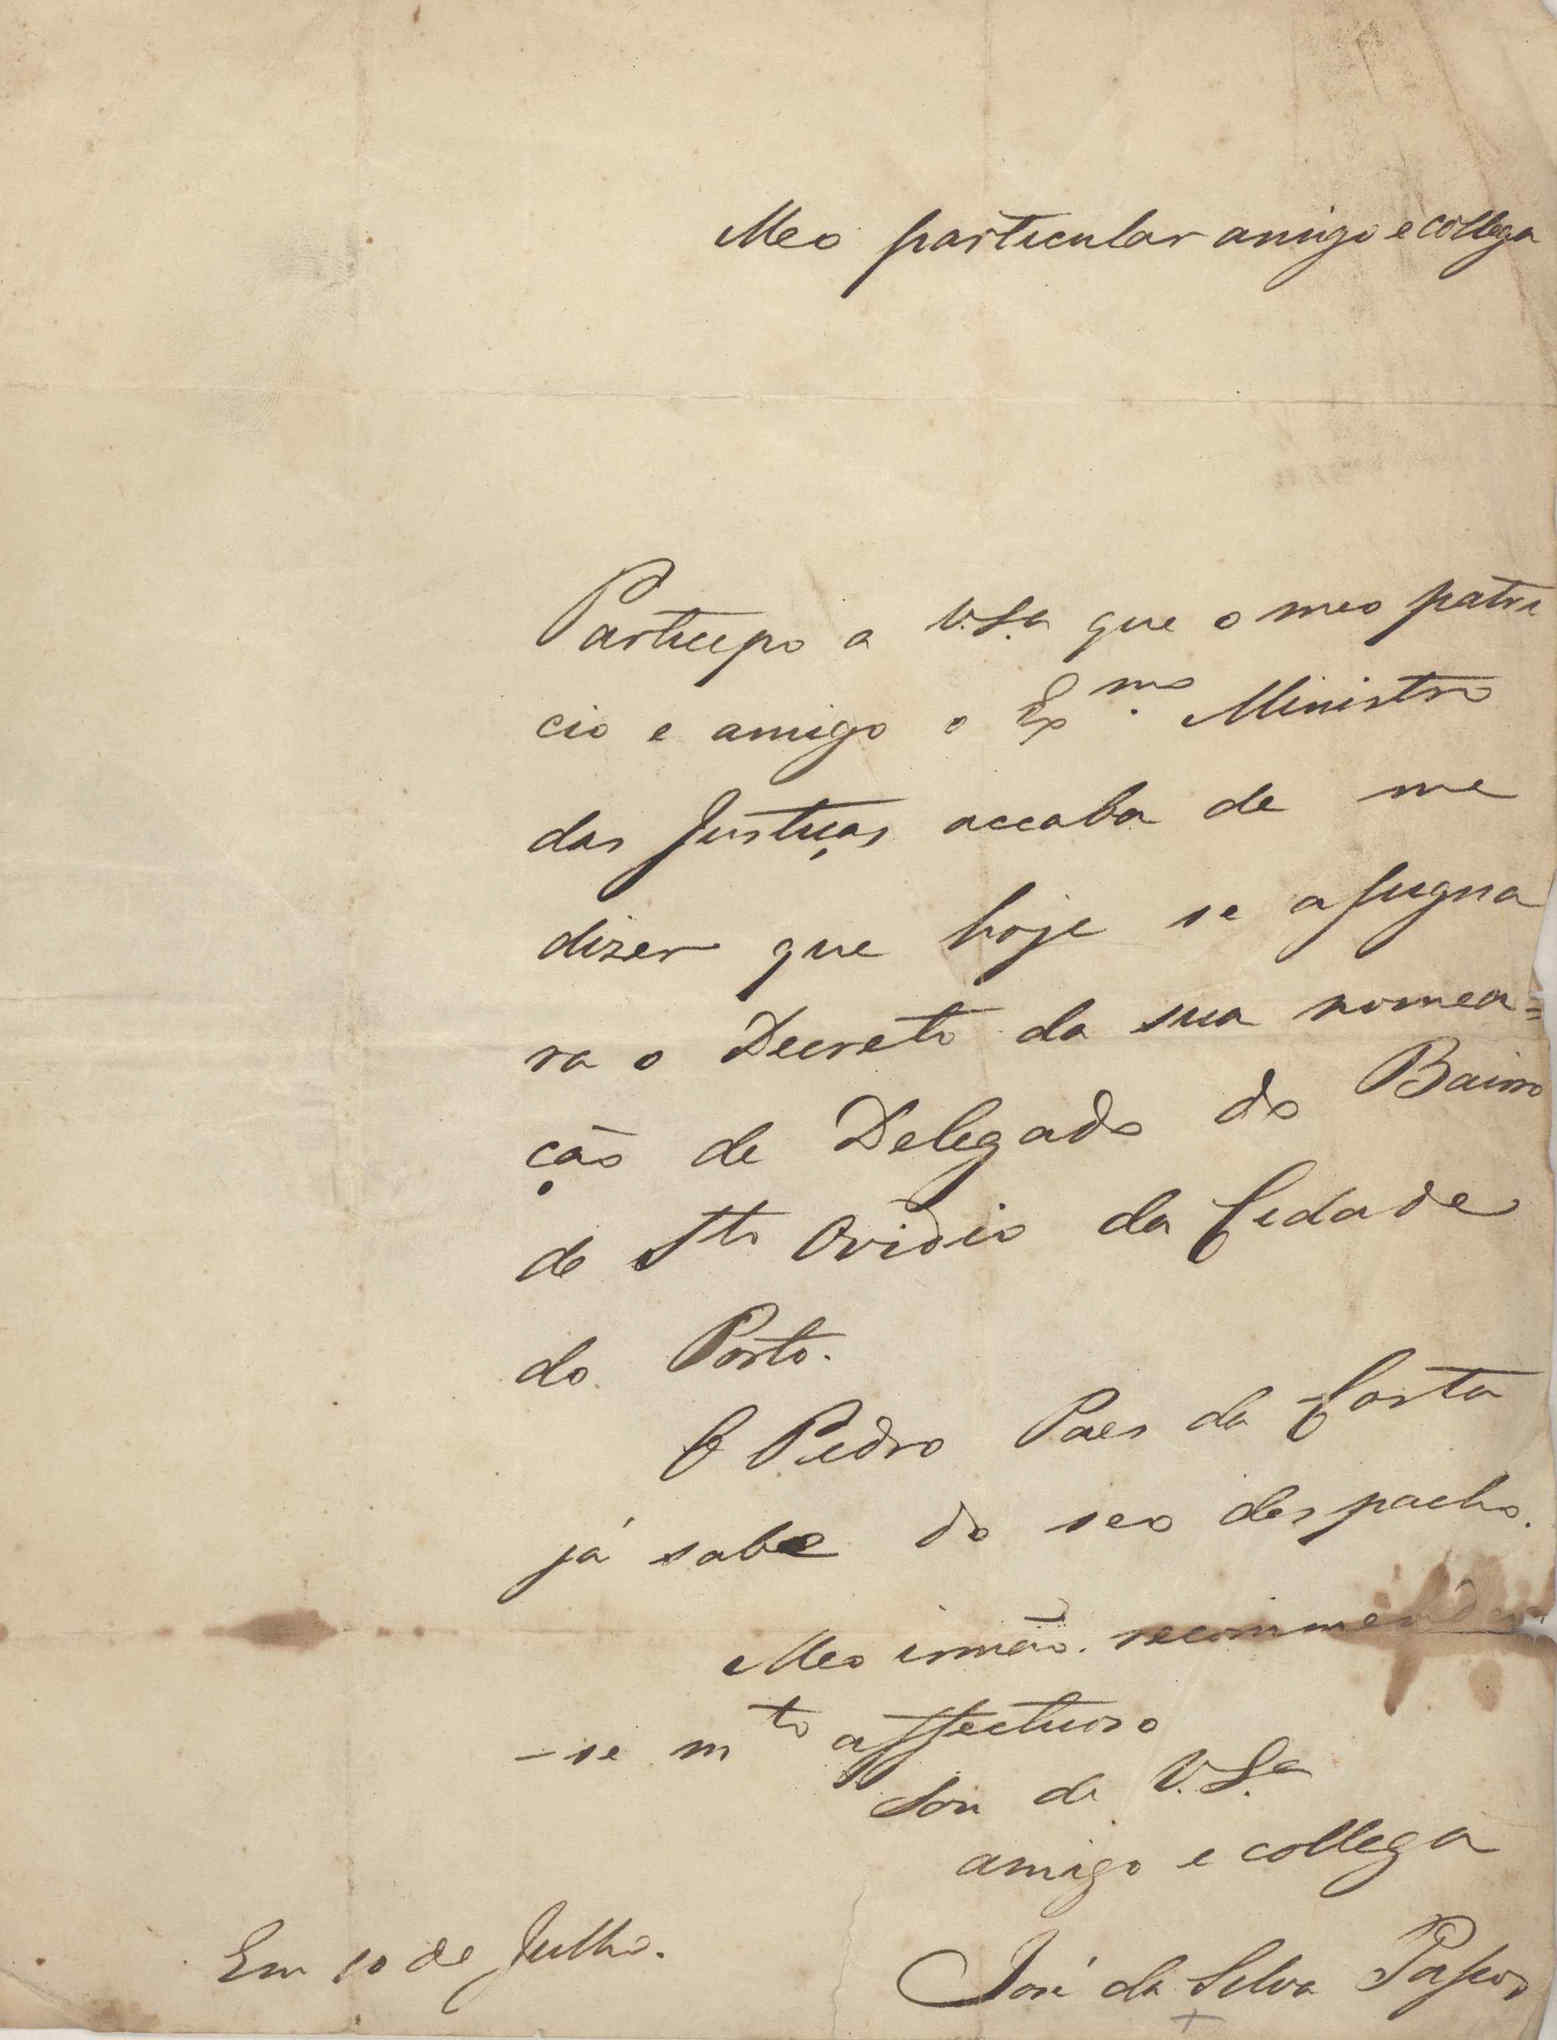 Meo particular amigo e collega
Participo a V.S.a que o meo patri
cio e amigo o Ex.mo Ministro
das Justiças accaba de me
dizer que hoje se assigna
ra o Decreto da sua nomea=
ção de Delegado do Bairro
de Sto Ovidio da Cidade
do Porto.
O Pedro Paes da Costa
já sabe do seo despacho.
Meo irmão recommenda
-se mto affectuoso
Sou de V.S.a
amigo e collega
Em 10 de Julho.
José da Silva Passos